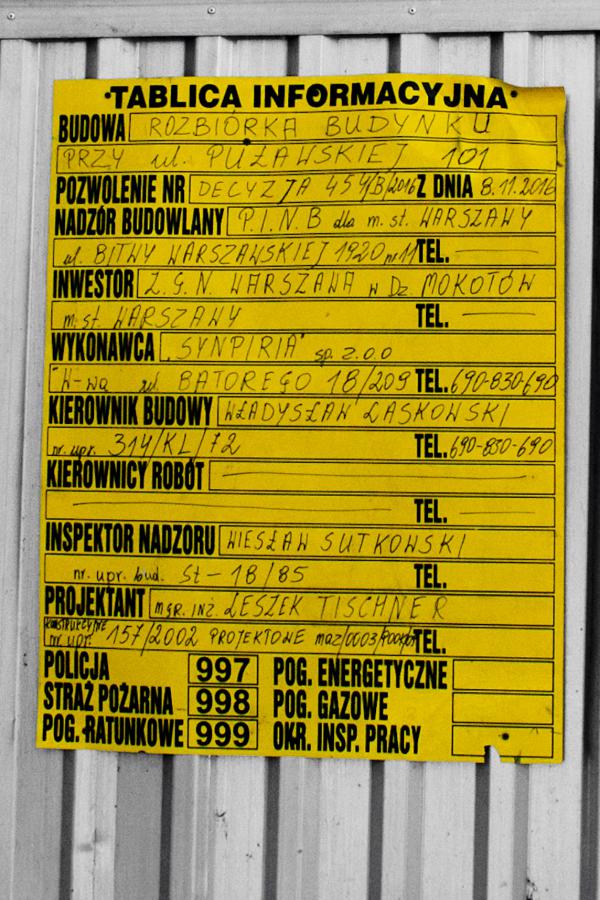 TABLICA INFORMACYJNA
BUDOWA ROZBIÓRKA BUDYNKU
PRZY ul. PUŻAWSKIEJ 101
POZWOLENIE NR DECYZJA 454/B/2016 Z DNIA 8.11.2016
NADZÓR BUDOWLANY P.I.N.B dla m. st. WARSZAWY
ul. BITWY WARSZAWSKIEJ 1920 nr 11 TEL.
INWESTOR Z.G.N. WARSZAWA w Dz. MOKOTÓW
m. st. WARSZAWY TEL.
WYKONAWCA „SYNPIRIA" sp. z.o.o
W-wa ul. BATOREGO 18/209 TEL. 690-830-690
KIEROWNIK BUDOWY WŁADYSŁAW LASKOWSKI
nr. upr. 314/KL/72 TEL. 690-830-690
KIEROWNICY ROBÓT
TEL.
INSPEKTOR NADZORU WIESŁAW SUTKOWSKI
nr. upr. bud. St-18/85 TEL.
PROJEKTANT mgr. inż. LESZEK TISCHNER
KONSTRUKCYJNE
nr. upr. 157/2002 PROJEKTOWE TEL.
POLICJA 997 POG. ENERGETYCZNE
STRAŻ POŻARNA 998 POG. GAZOWE
POG. RATUNKOWE 999 OKR. INSP. PRACY